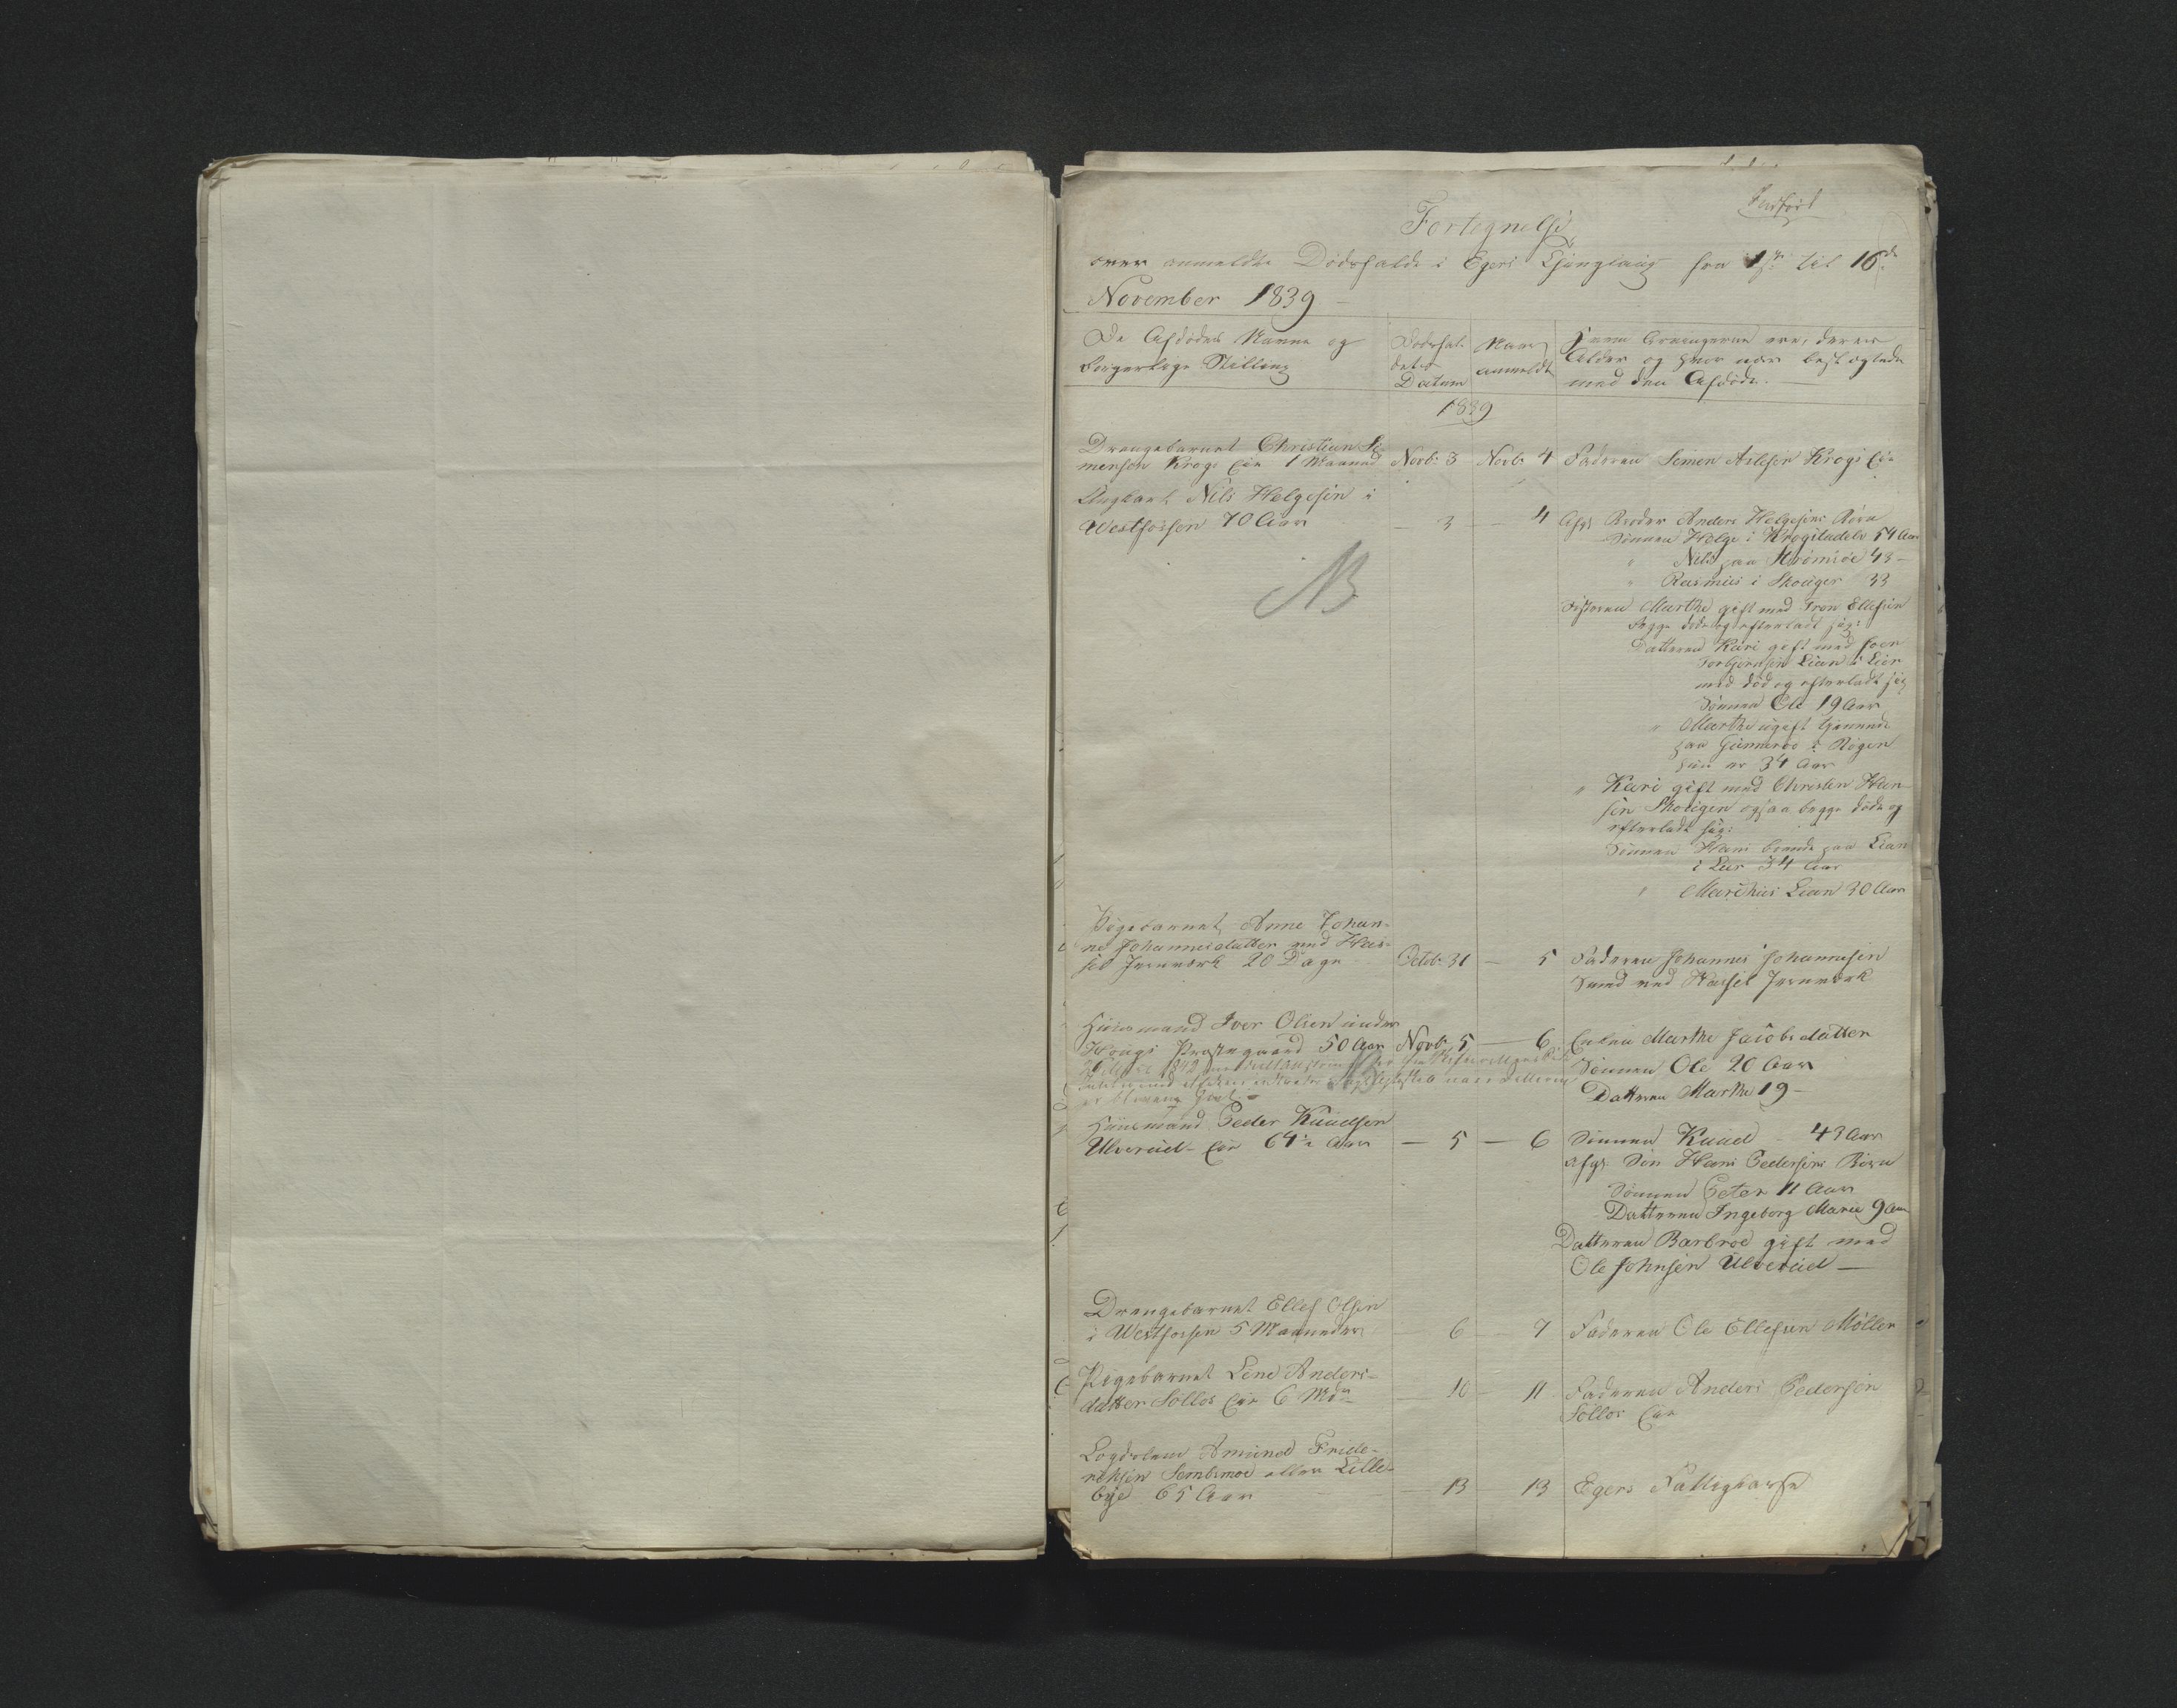 Fortegnelse
over anmeldte Dødsfalde i Egers Thinglaug fra 1ste til 16de
November 1839
De Afdødes Navne og
borgerlige Stilling
Dødsfal-
dets
Datum
Naar
anmeldt
Hvem Arvingerne ere, deres
Alder og hvor nær beslægtede
med den Afdøde.
1839
Drengebarnet Christian Si-
mensen Krogs Eie 1 Maaned
Novbr 3
Novbr 4
Faderen Simen Aslesen Krogs Eie
Nils Helgesen i
Westfossen 70 Aar
— 3
— 4
Afg. Broder Anders Helgesens Børn
Sønnen Helge i Krogstadelv 54 Aar
" Nils paa Strømsøe 43 —
" Rasmus i Skouger 33
Søsteren Marthe gift med Tron Ellefsen
begge døde og efterladt sig:
Datteren Kari gift med
Lian i Lier
med død og efterladt sig
Sønnen Ole 19 Aar
" Marthe ugift tjenende
paa i Røgen
hun er 34 Aar
" Kari gift med Christen Han-
sen Skougen ogsaa begge døde og
efterladt sig:
Sønnen Hans boende paa Lian
i Lier 34 Aar
" Marthius Lian 30 Aar
NB
Pigebarnet Anne Johan-
ne Johannesdatter ved Has-
sel Jernværk 20 Dage
Octob. 31
— 5
Faderen Johannes Johannesen
Smed ved Hassel Jernværk
Huusmand Iver Olsen under
Hougs Præstegaard 50 Aar
Novb. 5
— 6
Enken Marthe Jacobsdatter
Sønnen Ole 20 Aar
Datteren Marthe 19 —
Huusmand Peder Knudsen
Ulverud Eie 64½ Aar
— 5
— 6
Sønnen Knud — 43 Aar
Afg. Søn Hans Pedersens Børn
Sønnen Peter 11 Aar
Datteren Ingeborg Marie 9 Aar
Datteren Barbroe gift med
Ole Johnsen Ulverud —
Drengebarnet Ellef Olsen
i Westfossen 5 Maaneder
— 6
— 7
Faderen Ole Ellefsen Møller
Pigebarnet Lene Anders-
datter Sollos Eie 6 Mdr
— 10
11
Faderen Anders Pedersen
Sollos Eie
Lægdslem Amund Fride-
richsen Sembsmoe eller Lille-
bye 65 Aar
— 13
— 13
Egers Fattigkasse